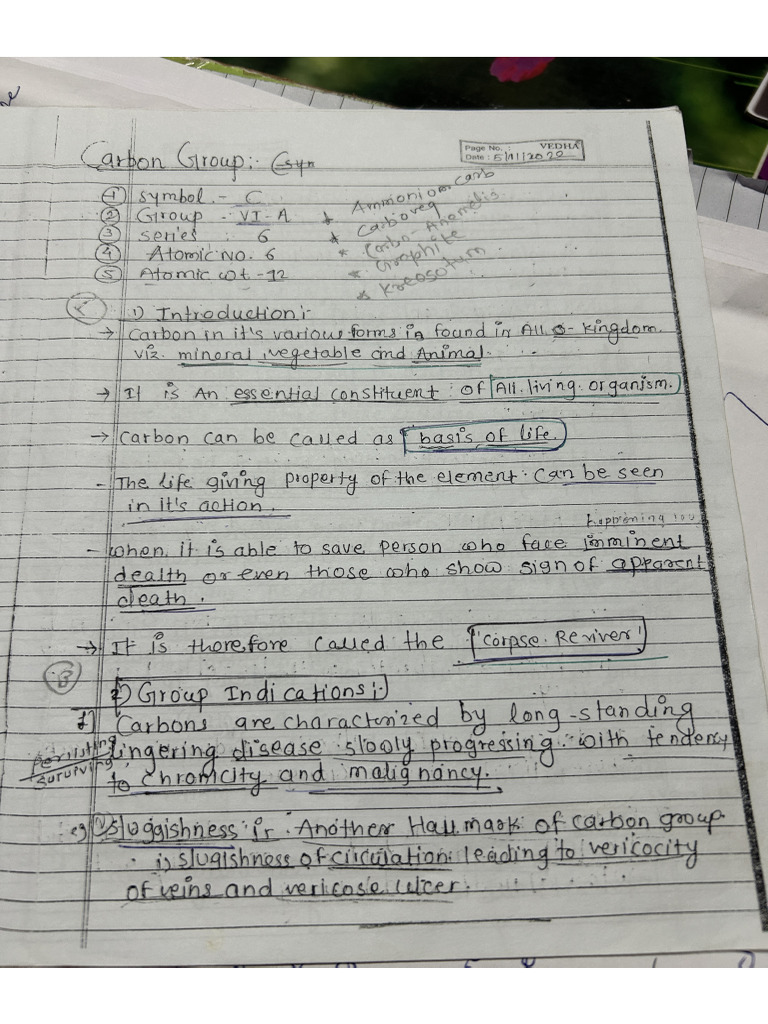 Page No. : VEDHA
Date : 5/11/2022
Carbon Group:-
① symbol.- C
② Group - VI-A
③ series : 6
④ Atomic No. 6
⑤ Atomic wt.-12
* Ammonium carb
* Carboveg
* Carbo-Animalis
* Graphite
* Kreosotum
1) Introduction:-
→ Carbon in it's various forms is found in All 3- kingdom.
viz. mineral, vegetable and Animal.
→ It is An essential constituent of All living organism.
→ Carbon can be called as basis of life.
- The life giving property of the element can be seen
in it's action.
happening
- when it is able to save person who face imminent
dealth or even those who show sign of apparent
death.
→ It is therefore called the 'Corpse Reviver'
2) Group Indications:-
1) Carbons are characterized by long-standing
persisting
surviving
lingering disease slowly progressing with tendency
to chronicity and malignancy.
2) sluggishness is Another Hallmark of carbon group.
i) slugishness of circulation leading to vericocity
of veins and vericose ulcer.